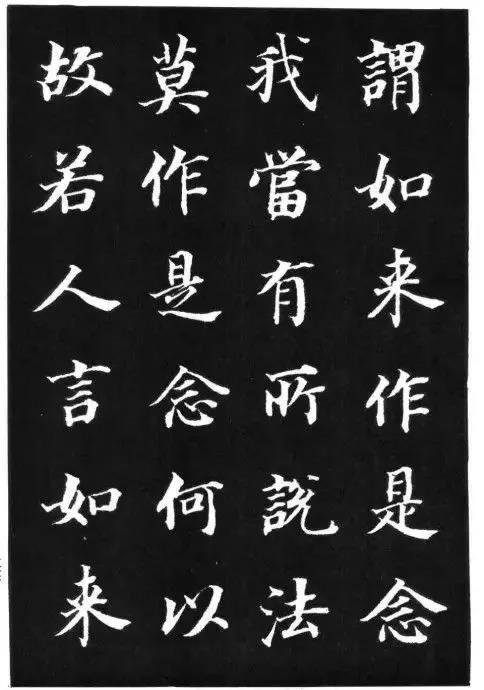 謂如来作是念
我當有所説法
莫作是念何以
故若人言如来